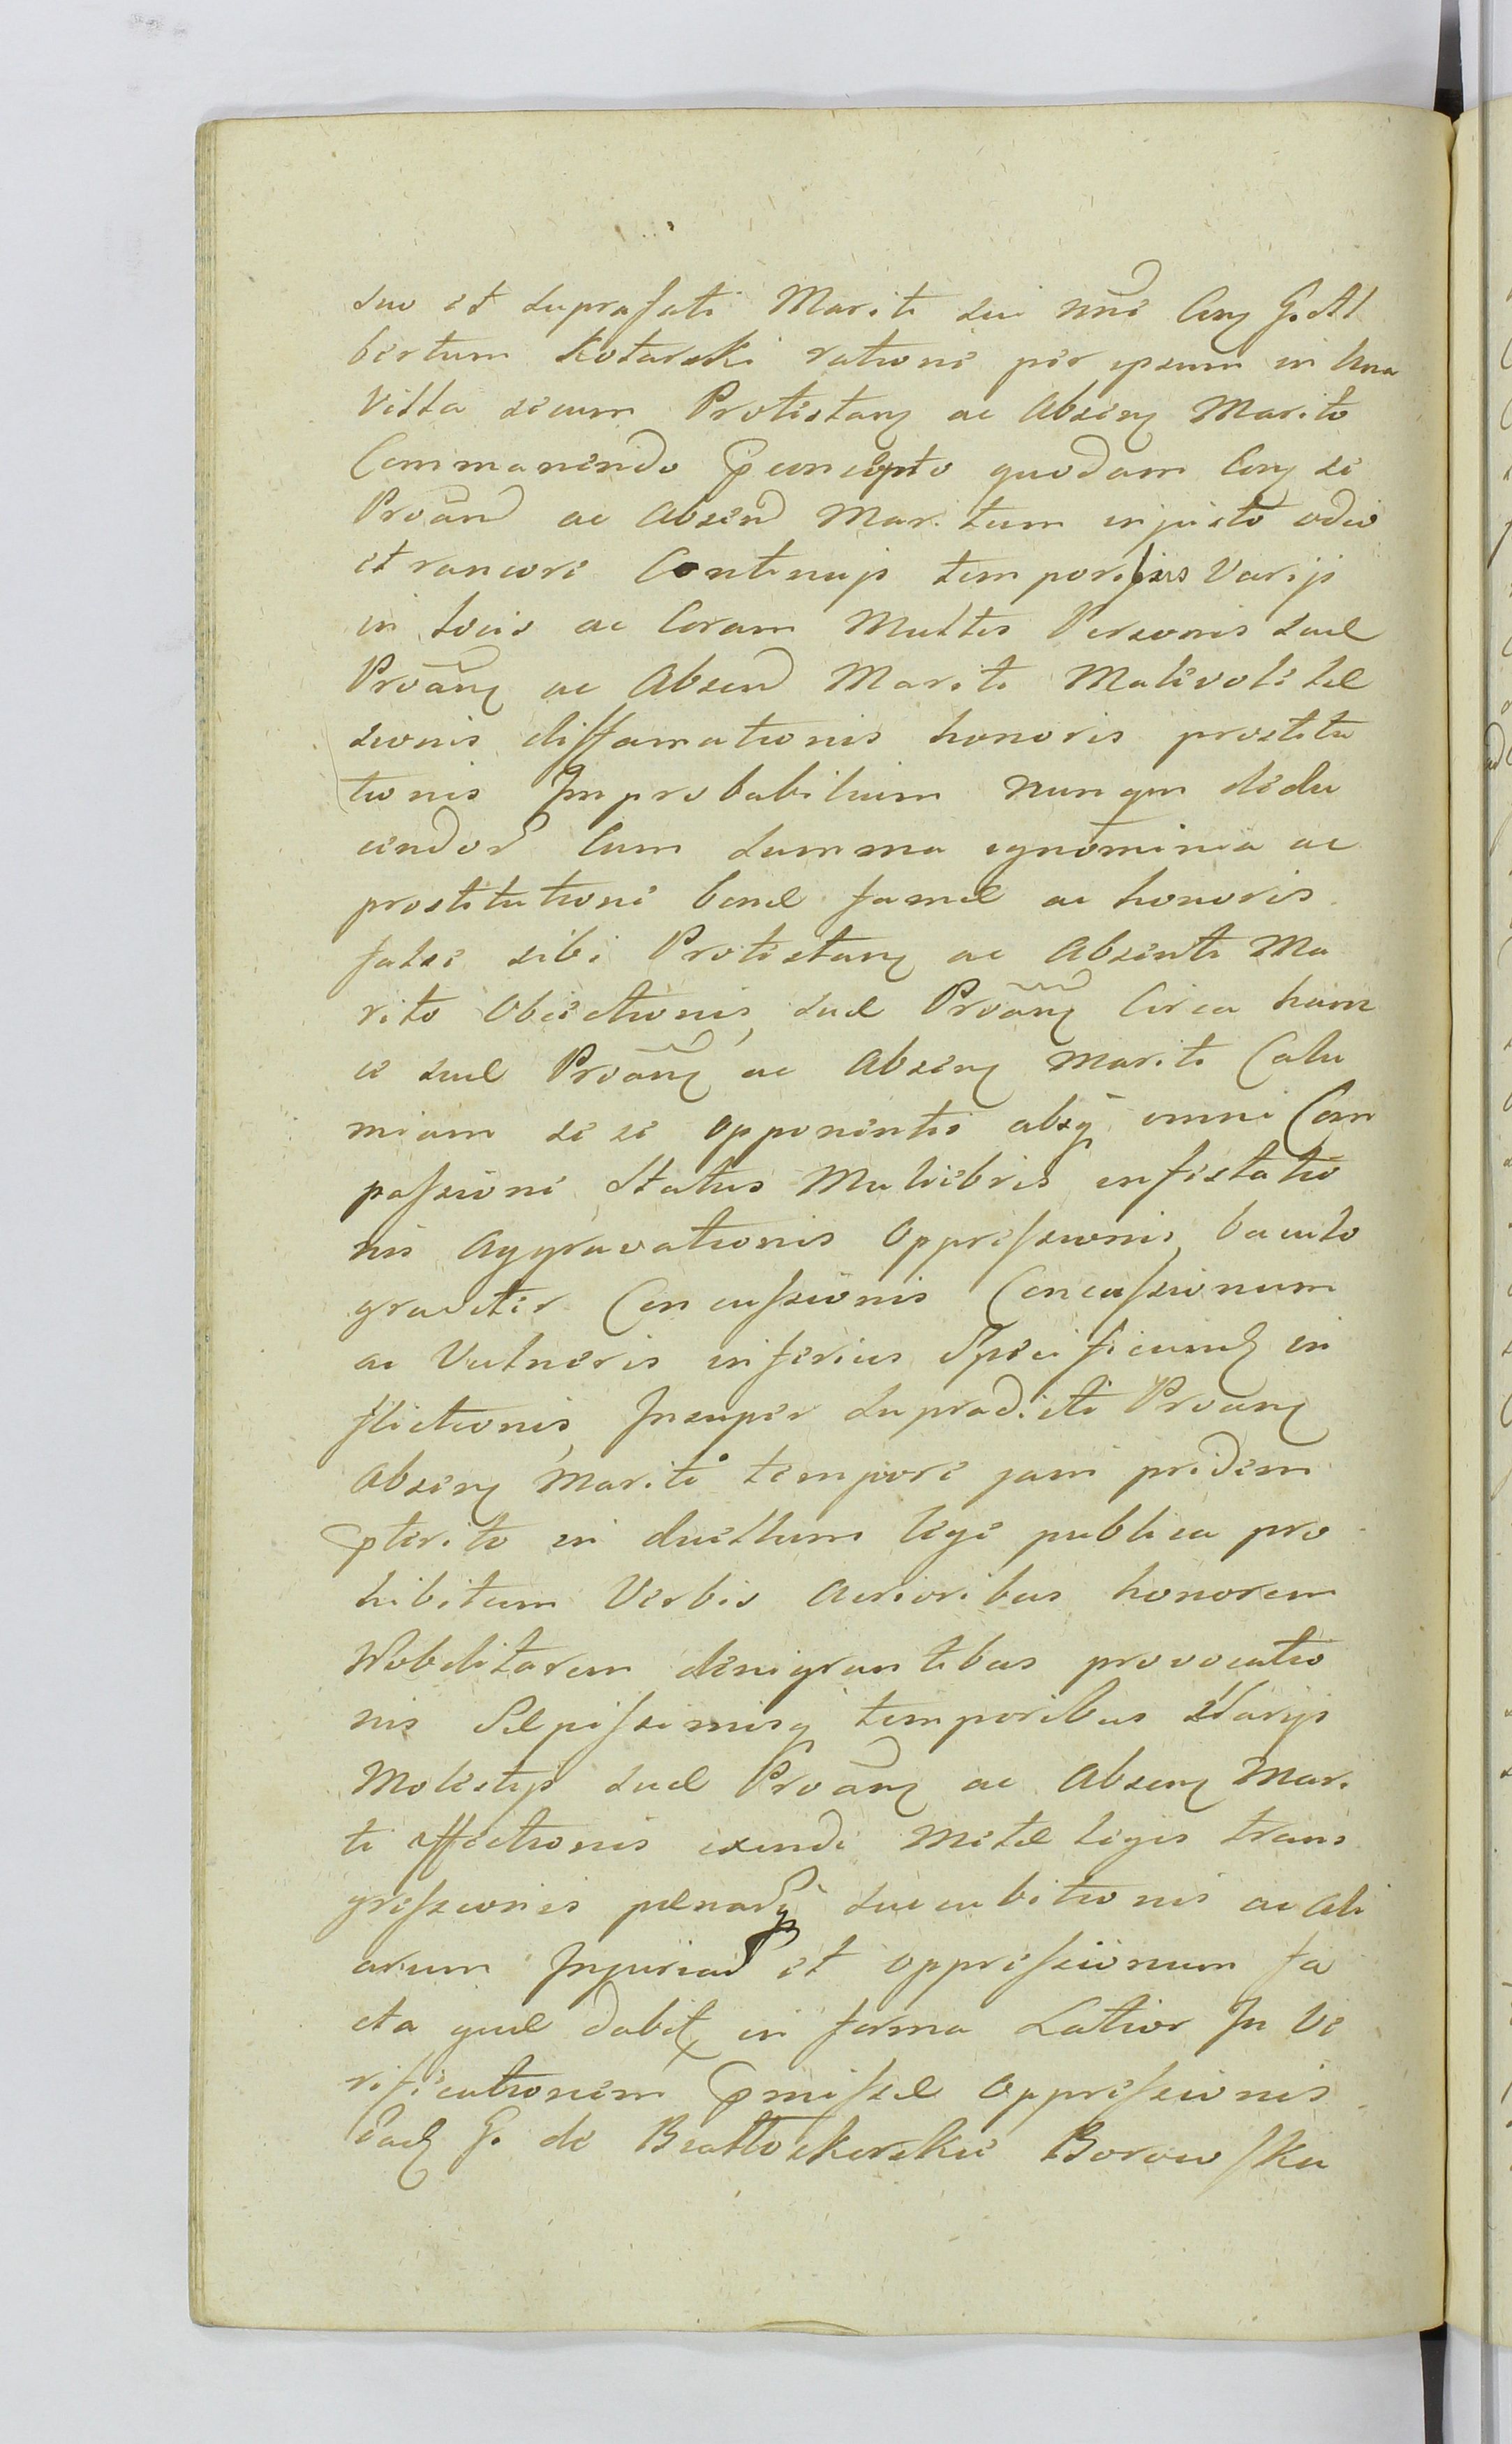 suo et suprafati Mariti sui nne Cnẽ G. Al
bertum Kotarski ratione per ipsum in una
Villa secum Protestanẽ ac Absenẽ Marito
Commanendo pconcepto quodam Cnẽ se
Proãnd ac Absend Maritum injusto odio
et rancore Continujs temporibus Varijs
in locis ac Coram Multis Personis suae
Proãnẽ ac Absend Mariti Malevolae lae
sionis diffamationis honoris prostitu
tionis Improbabilium nunqm dedu
cendor Cum summa ignominia ac
prostitutione bonae famae ac honoris
false sibi Protestanẽ ac Absenti Ma
rito Obiectionis, suae Proãnẽ Circa hanc
ce suae Proãnẽ ac Absenẽ Mariti Calu
mniam sese opponentis absq omni Com
passione Status Muliebris infestatio
nis Aggravationis Oppressionis, baculo
graviter Concussionis Concussionum
ac Vulneris inferius Specificand in
flictionis, Insuper supradicti Proãnẽ
Absenẽ Mariti tempore jam pridem
pterito in duellum lege publica pro
hibitum Verbis Acrioribus honorem
Nobilitarem denigrantibus provocatio
nis Saepissimisq temporibus Varijs
Molestijs suae Proãnẽ ac Absenẽ Mari
ti affectionis exinde Metae legis trans
gressionis paenarq succubitionis ac Ali
arum Injuriar et oppressionum fa
cta quae dabit in forma Latior In Ve
rificationem pmissae Oppressionis
Ead G. de Białłoskorskie Borowska